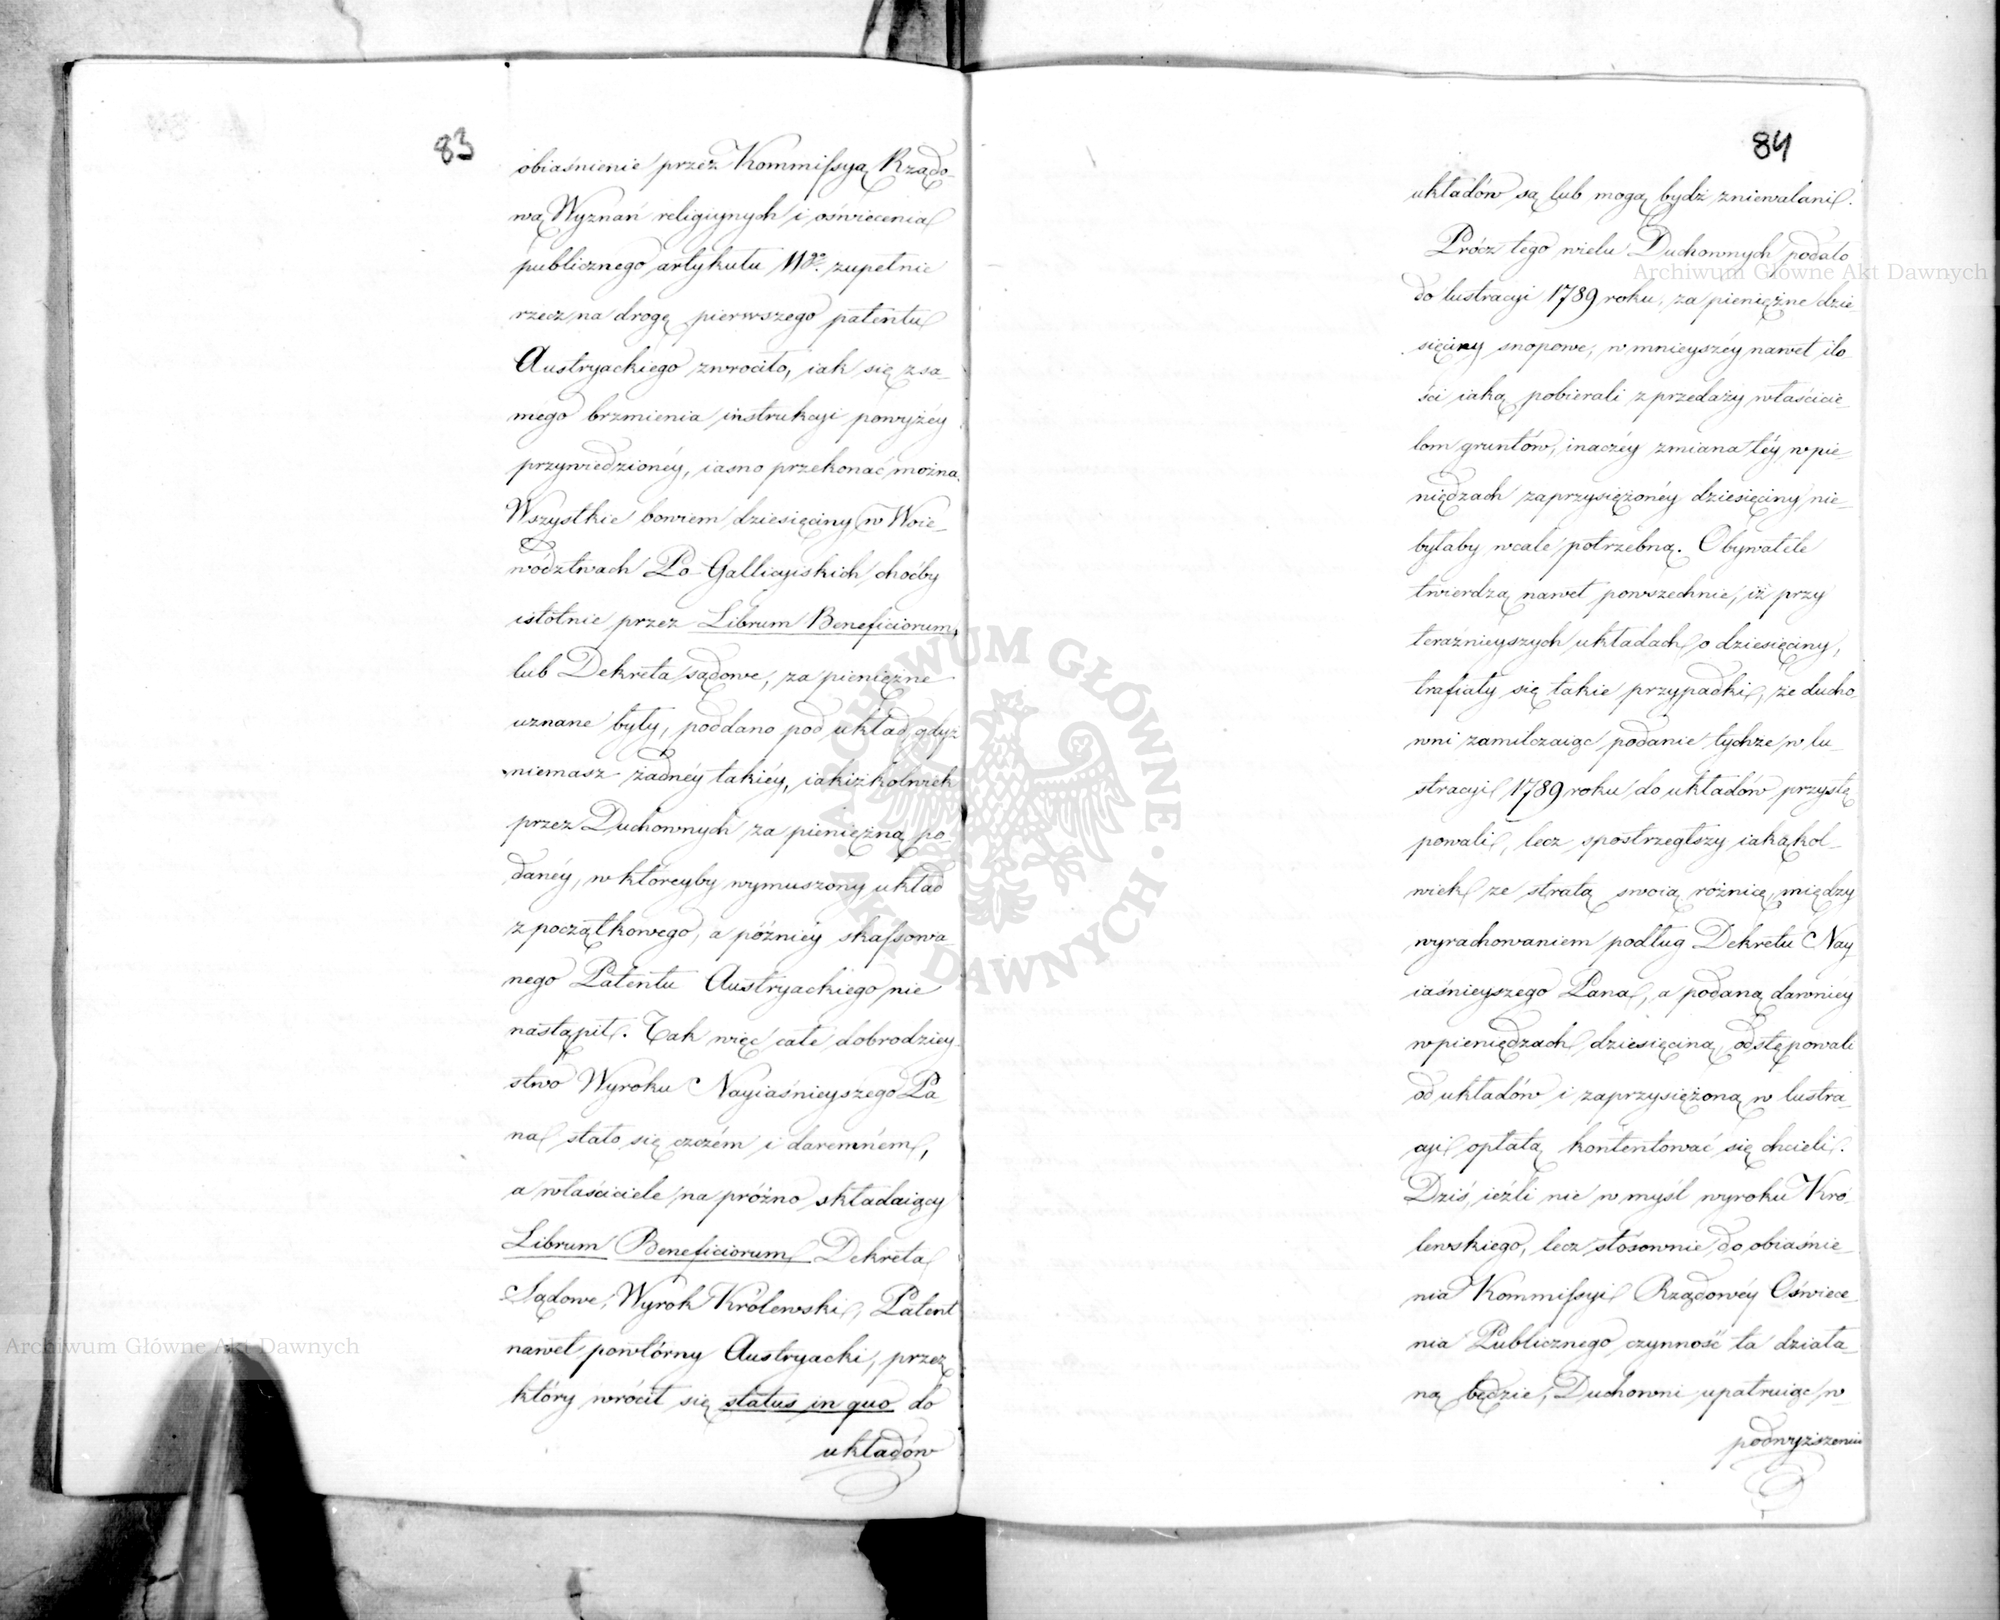 83
obiaśnienie przez Kommissyą Rządo-
wą Wyznań religiynych i oświecenia
publicznego artykułu 11go. zupełnie
rzecz na drogę pierwszego patentu
Austryackiego zwróciło, iak się z sa-
mego brzmienia instrukcyi powyżéy
przywiedzionéy, iasno przekonać można.
Wszystkie bowiem dziesięciny w Woie-
wództwach Po-Gallicyiskich choćby
istotnie przez Librum Beneficiorum,
lub Dekreta sądowe, za pieniężne
uznane były, poddano pod układ, gdyż
niemasz żadnéy takiéy, iakiżkolwiek
przez Duchownych za pieniężną po-
danéy, w któreyby wymuszony układ
z początkowego, a późniéy skassowa-
nego Patentu Austryackiego nie
nastąpił. Tak więc całe dobrodziey-
stwo Wyroku Nayiaśnieyszego Pa-
na stało się czczém i daremném,
a właściciele na próżno składaiący
Librum Beneficiorum, Dekreta
Sądowe, Wyrok Królewski, Patent
nawet powtórny Austryacki, przez
który wrócił się status in quo do
układów
84
układów są lub mogą bydź zniewalani.
Prócz tego wielu Duchownych podało
do lustracyi 1789 roku, za pieniężne dzie-
sięciny snopowe, w mnieyszéy nawet ilo-
ści iaką pobierali z przedaży właścicie-
lom gruntów, inaczéy zmiana téy w pie-
niędzach zaprzysiężonéy dziesięciny nie-
byłaby wcale potrzebną. Obywatele
twierdzą nawet powszechnie, iż przy
teraźnieyszych układach o dziesięciny,
trafiały się takie przypadki, że ducho-
wni zamilczaiąc podanie tychże w lu-
stracyi 1789 roku do układów przystę-
powali, lecz spostrzegłszy iakąkol-
wiek ze stratą swoią różnicę, między
wyrachowaniem podług Dekretu Nay-
iaśnieyszego Pana, a podaną dawniéy
w pieniędzach dziesięciną, odstępowali
od układów i zaprzysiężoną w lustra-
cyi opłatą kontentować się chcieli.
Dziś, ieźli nie w myśl wyroku Kró-
lewskiego, lecz stósownie do obiaśnie-
nia Kommissyi Rządowéy Oświece-
nia Publicznego czynność ta działa-
ną będzie, Duchowni upatruiąc w
podwyższeniu
Archiwum Główne Akt Dawnych
Archiwum Główne Akt Dawnych
ARCHIWUM GŁÓWNE · AKT DAWNYCH ·